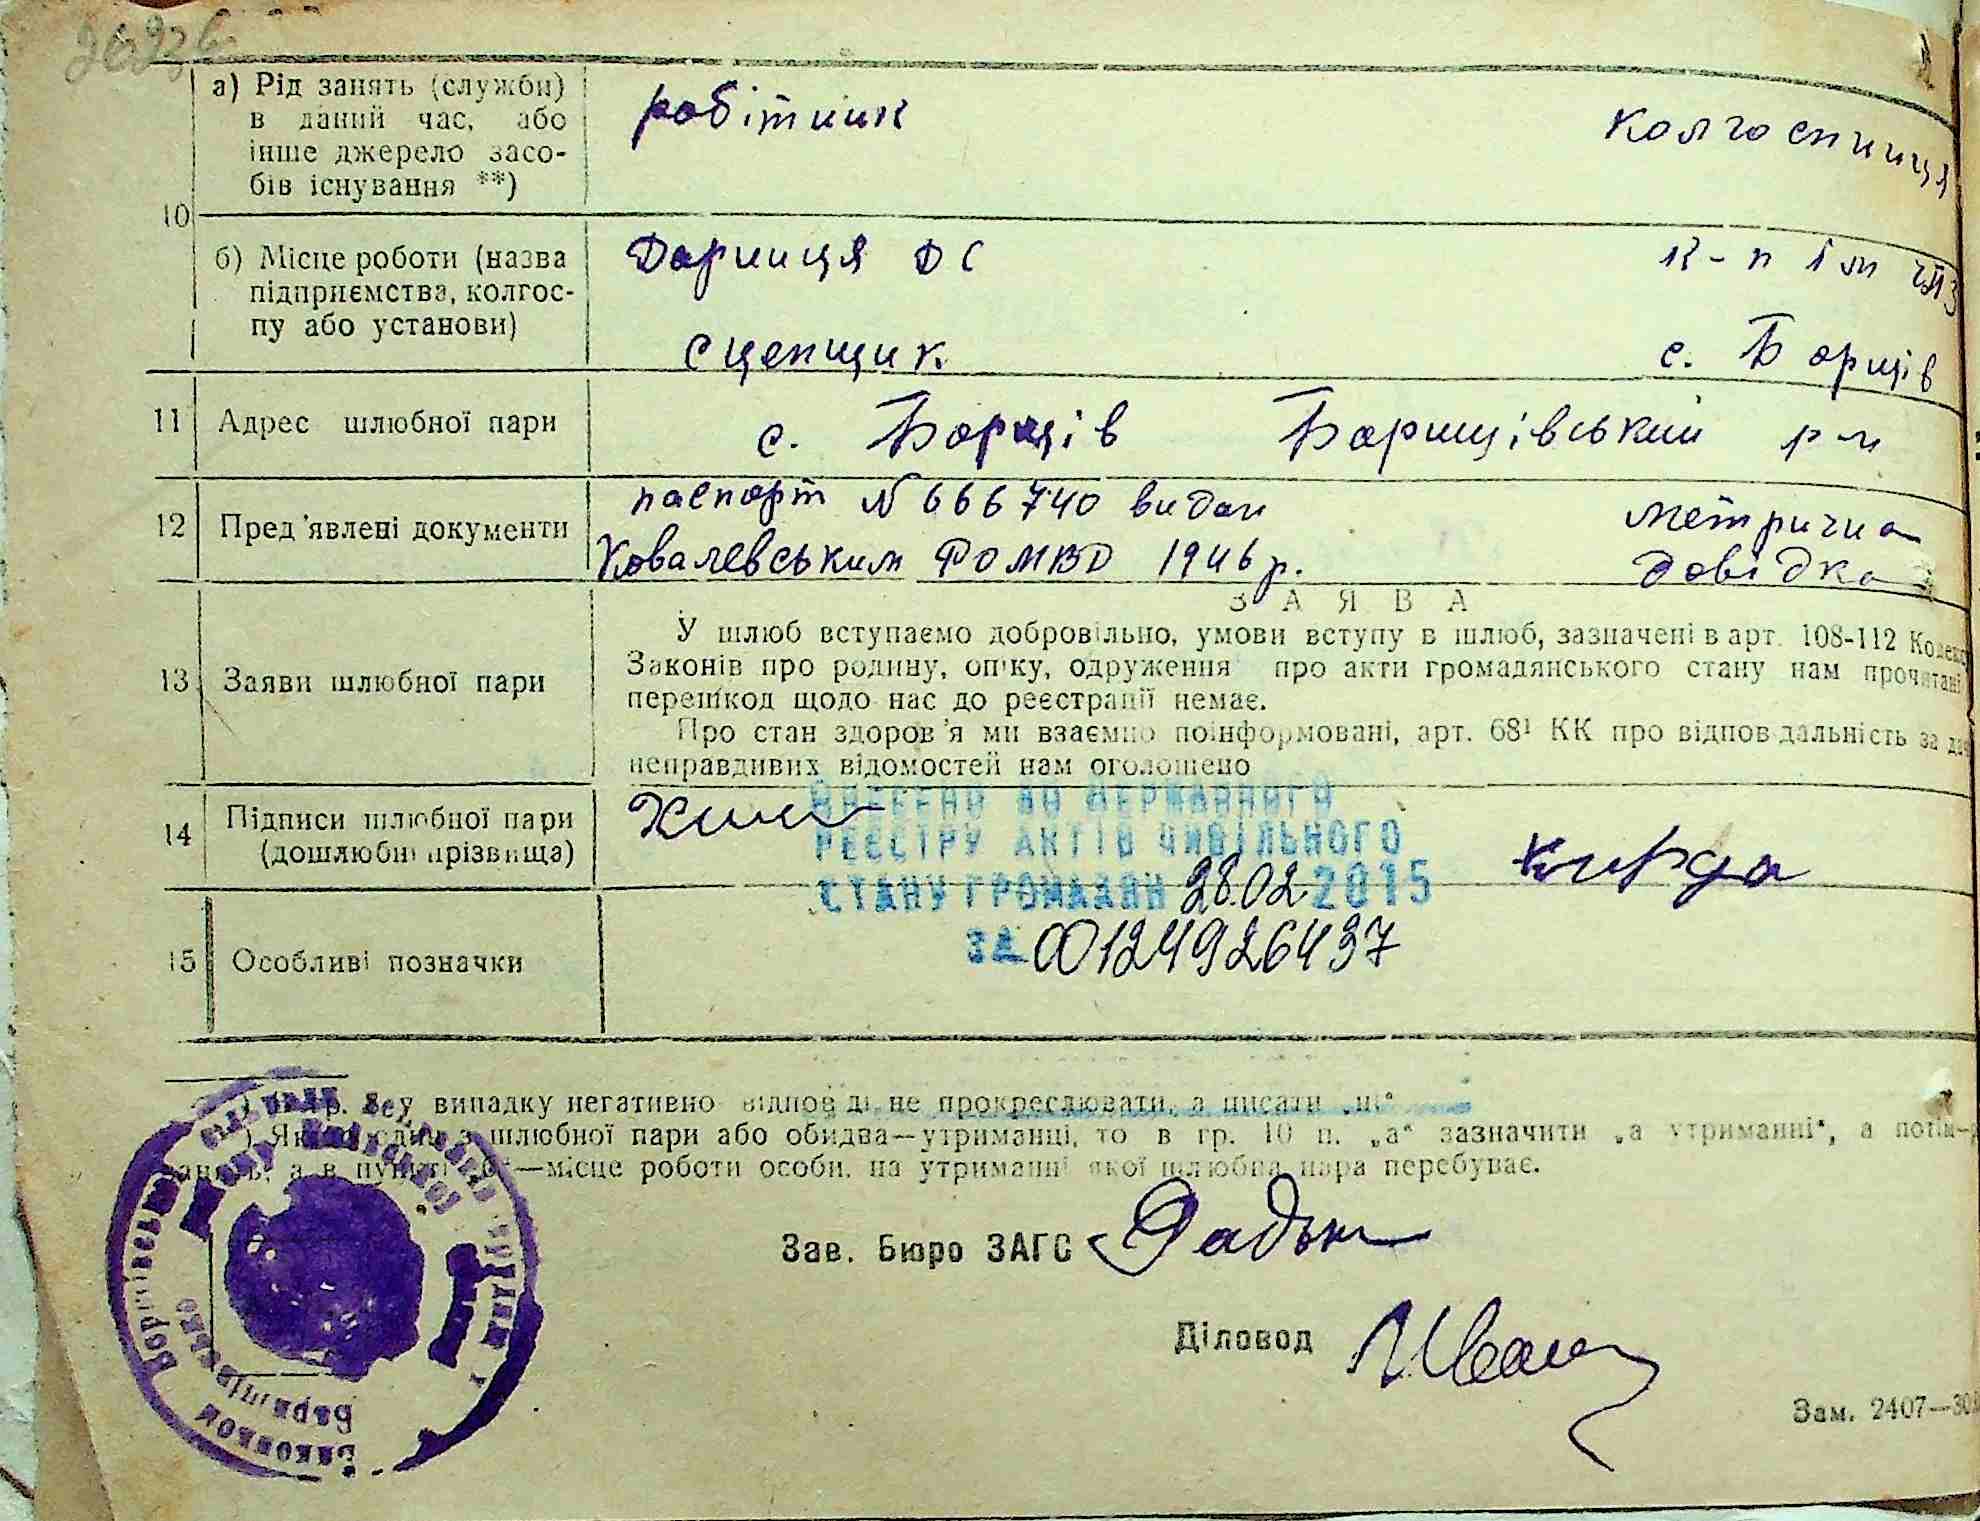 а) Рід занять (служби)
в даний час, або
інше джерело засо-
бів існування **)
робітник
колгоспниця
10
б) Місце роботи (назва
підприємства, колгос-
пу або установи)
Дарниця ДС
сцепщик
к-п ім
с. Борщів
11 Адрес шлюбної пари
с. Борщів Баришівський р-н
12 Пред'явлені документи
паспорт № 666740 видан
Ковалевським РОМВД 1946 р.
метрична
довідка
ЗАЯВА
13 Заяви шлюбної пари
У шлюб вступаємо добровільно, умови вступу в шлюб, зазначені в арт. 108-112 Кодекс
Законів про родину, опіку, одруження про акти громадянського стану нам прочитані
перешкод щодо нас до реєстрації немає.
Про стан здоров'я ми взаємно поінформовані, арт. 68¹ КК про відповідальність за
неправдивих відомостей нам оголошено
14 Підписи шлюбної пари
(дошлюбні прізвища)
Кирда
ВНЕСЕНО ДО ДЕРЖАВНОГО
РЕЄСТРУ АКТІВ ЦИВІЛЬНОГО
СТАНУ ГРОМАДЯН 28.02 2015
ЗА 00124926437
15 Особливі позначки
у випадку негативної відповіді не прокреслювати, а писати „ні“
) Якщо один з шлюбної пари або обидва—утриманці, то в гр. 10 п. „а“ зазначити „а утриманні“, а потім
а в пункті „б“—місце роботи особи, на утриманні якої шлюбна пара перебуває.
Зав. Бюро ЗАГС
Діловод
Зам. 2407—30